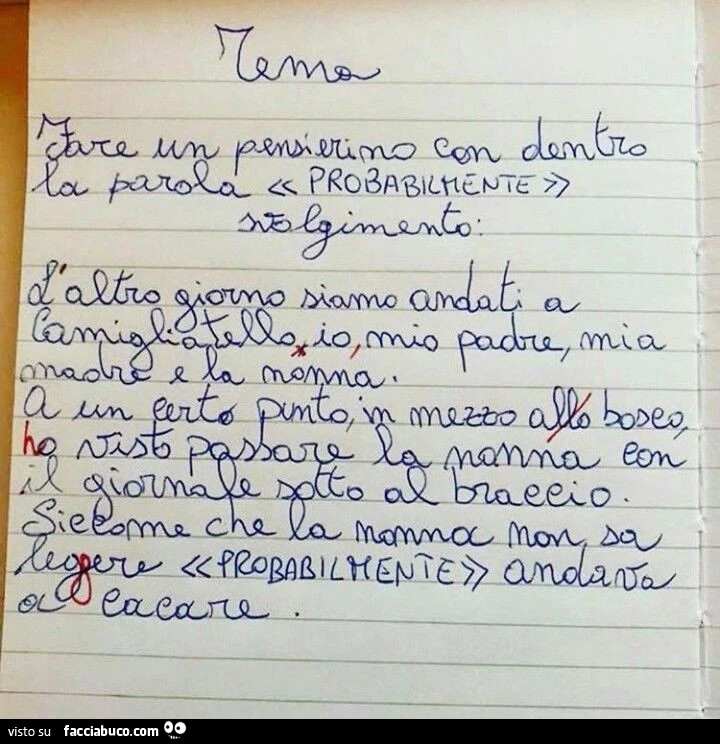 Tema
Fare un pensierino con dentro
la parola «PROBABILMENTE»
svolgimento:
L'altro giorno siamo andati a
Camigliatello, io, mio padre, mia
madre e la nonna.
A un certo punto, in mezzo allo bosco,
ho visto passare la nonna con
il giornale sotto al braccio.
Siccome che la nonna non sa
leggere «PROBABILMENTE» andava
a cacare.
visto su facciabuco.com